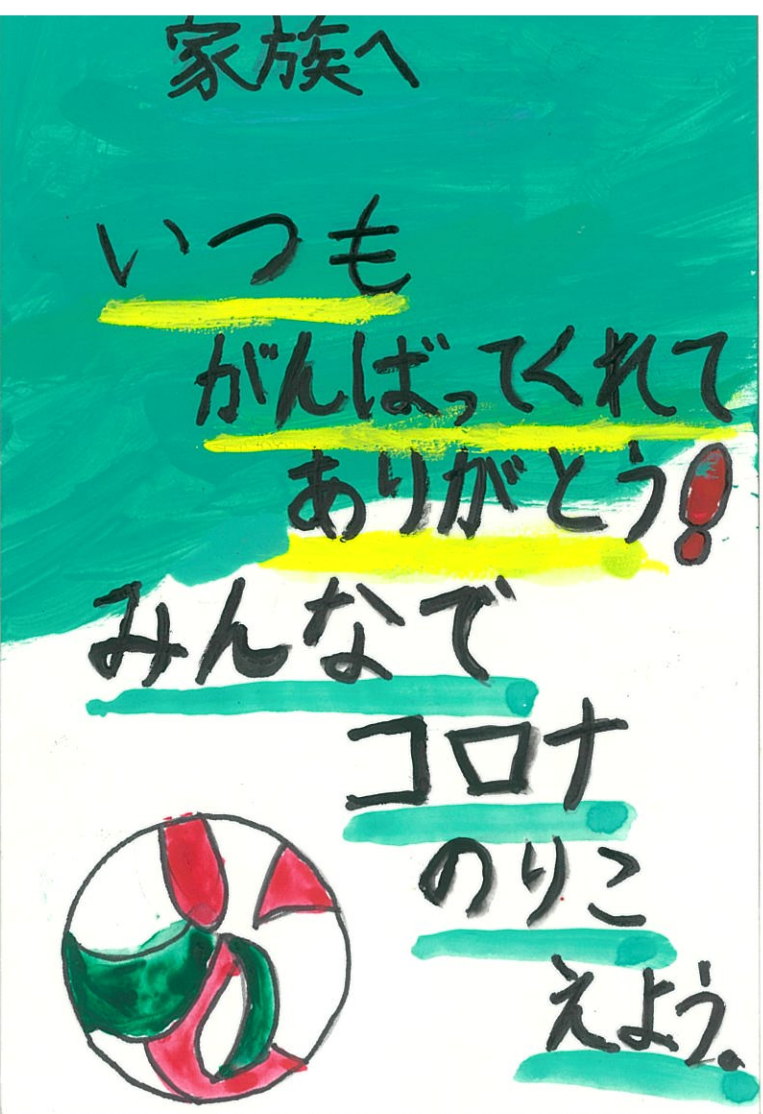 家族へ
いつも
がんばってくれて
ありがとう!
みんなで
コロナ
のりこ
えよう。